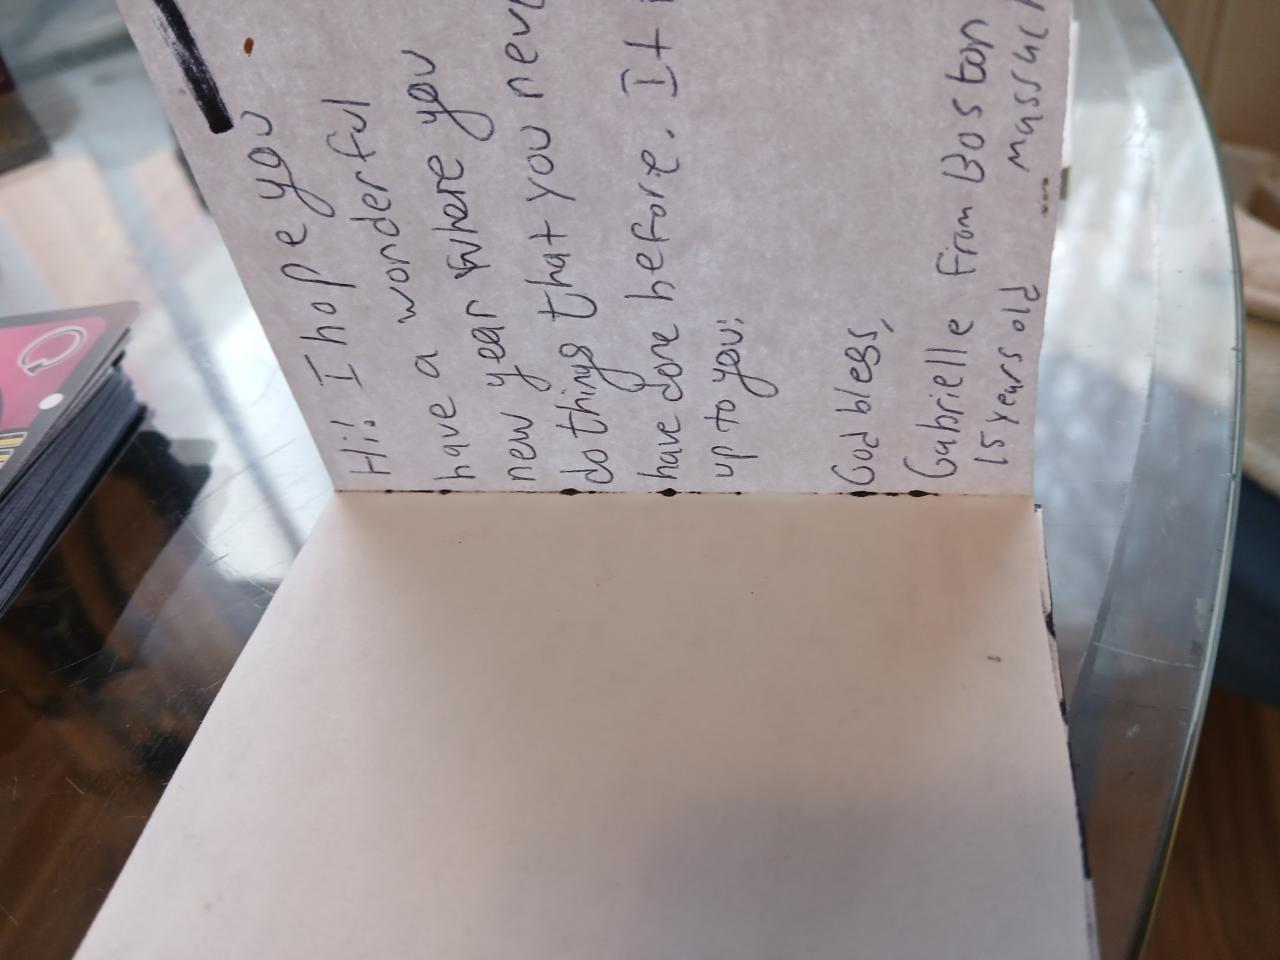 Hi! I hope you
have a wonderful
new year where you
do things that you neve
have done before. It i
up to you!
God bless,
Gabrielle from Boston
15 years old massach